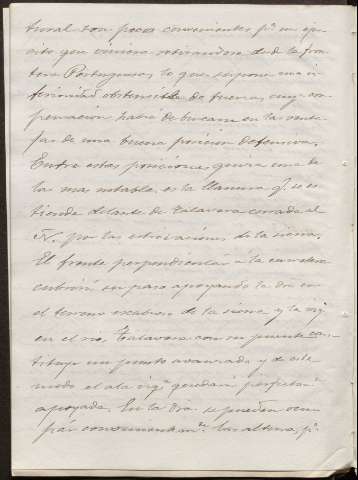 tural son pocos convenientes pª un ejer-
cito que viniera retirandose desde la fron
tera Portuguesa, lo que supone una in
ferioridad ostensible de fuerza, cuya com
pensacion habra de buscarse en las venta-
jas de una buena posicion defensiva.
Entre estas posiciones, quiza una de
las mas notable, es la llanura q. se es
tiende delante de Talavera cerrada al
N. por las estribaciones de la sierra.
El frente perpendicular a la carretera
cubriria su paso apoyando la dra en
el terreno escabroso de la sierra y la izqª
en el rio. Talavera con su puente cons
tituye un punto avanzado y de este
modo el ala izqª quedaria perfectamte
apoyada. En la dra se pueden ocu
par convenientemte las alturas, pª